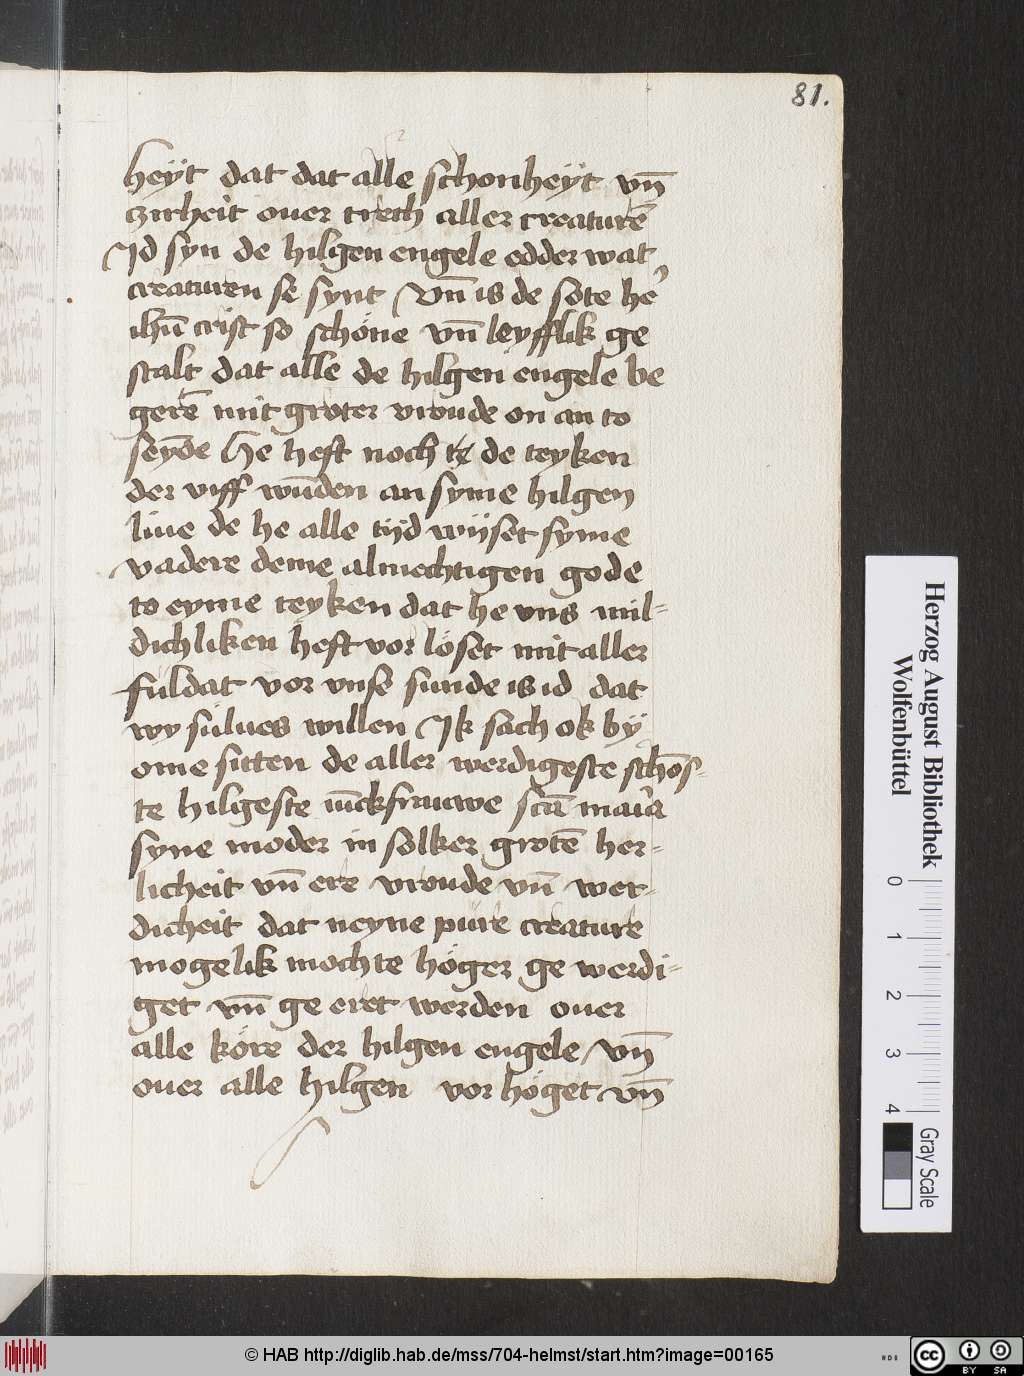 81.
heÿt dat dat alle schonheÿt vn̄
czirheit ouer treth aller creaturē
Id syn de hilgen engele edder wat
creaturen se synt vn̄ is de sote he᷑
ihū crist so schöne vn̄ leyfflik ge
stalt dat alle de hilgen engele be
gerē mit groter vroude on an to
seyn̄de he heft noch de teyken
der viff wūden an syme hilgen
liue de he alle tÿd wÿset syme
vadere deme almechtigen gode
to eyme teyken dat he vns mil=
dichliken heft vor löset mit aller
fuldat vor vnse sunde is id dat
wy sulues willen Ik sach ok bÿ
ome sitten de aller werdigeste schōs=
te hilgeste iūckfrauwe scā maria
syne moder in solker grotē her=
licheit vn̄ ere vroude vn̄ wer=
dicheit dat neyne pure creature
mogelik mochte höger ge werdi=
get vn̄ ge eret werden ouer
alle köre der hilgen engele vn̄
ouer alle hilgen vor höget vn̄
Herzog August Bibliothek
Wolfenbüttel
0 1 2 3 4
Gray Scale
© HAB http://diglib.hab.de/mss/704-helmst/start.htm?image=00165
HAB
cc BY SA